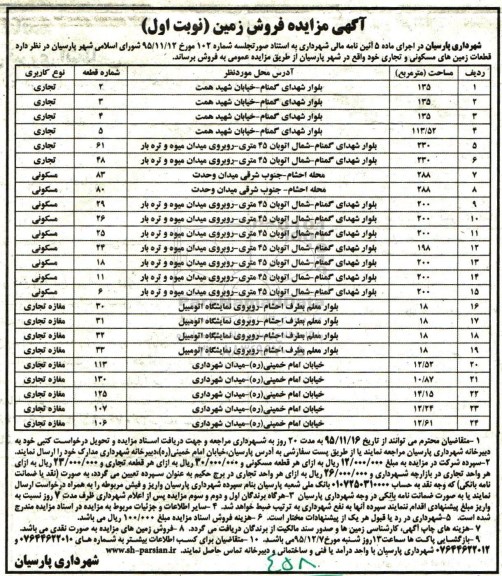 آگهی مزایده فروش زمین (نوبت اول)
شهرداری پارسیان در اجرای ماده ۵ آئین نامه مالی شهرداری به استناد صورتجلسه شماره ۱۰۲ مورخ ۹۵/۱۱/۱۲ شورای اسلامی شهر پارسیان در نظر دارد
قطعات زمین های مسکونی و تجاری خود واقع در شهر پارسیان از طریق مزایده عمومی به فروش برساند.
ردیف مساحت (مترمربع) آدرس محل موردنظر شماره قطعه نوع کاربری
۱ ۱۳۵ بلوار شهدای گمنام-خیابان شهید همت ۲ تجاری
۲ ۱۳۵ بلوار شهدای گمنام-خیابان شهید همت ۳ تجاری
۳ ۱۳۵ بلوار شهدای گمنام-خیابان شهید همت ۴ تجاری
۴ ۱۱۳/۵۲ بلوار شهدای گمنام-خیابان شهید همت ۵ تجاری
۵ ۲۳۰ بلوار شهدای گمنام-شمال اتوبان ۴۵ متری-روبروی میدان میوه و تره بار ۶۱ تجاری
۶ ۲۳۰ بلوار شهدای گمنام-شمال اتوبان ۴۵ متری-روبروی میدان میوه و تره بار ۴۸ تجاری
۷ ۲۸۸ محله احشام-جنوب شرقی میدان وحدت ۸۳ مسکونی
۸ ۲۸۸ محله احشام- جنوب شرقی میدان وحدت ۸۰ مسکونی
۹ ۲۰۰ بلوار شهدای گمنام-شمال اتوبان ۴۵ متری-روبروی میدان میوه و تره بار ۲۹ مسکونی
۱۰ ۲۰۰ بلوار شهدای گمنام-شمال اتوبان ۴۵ متری-روبروی میدان میوه و تره بار ۲۶ مسکونی
۱۱ ۲۰۰ بلوار شهدای گمنام-شمال اتوبان ۴۵ متری-روبروی میدان میوه و تره بار ۲۵ مسکونی
۱۲ ۱۹۸ بلوار شهدای گمنام-شمال اتوبان ۴۵ متری-روبروی میدان میوه و تره بار ۲۴ مسکونی
۱۳ ۲۰۰ بلوار شهدای گمنام-شمال اتوبان ۴۵ متری-روبروی میدان میوه و تره بار ۱۸ مسکونی
۱۴ ۲۰۰ بلوار شهدای گمنام-شمال اتوبان ۴۵ متری-روبروی میدان میوه و تره بار ۱۱ مسکونی
۱۵ ۲۰۰ بلوار شهدای گمنام-شمال اتوبان ۴۵ متری-روبروی میدان میوه و تره بار ۶ مسکونی
۱۶ ۱۸ بلوار معلم بطرف احشام-روبروی نمایشگاه اتومبیل ۳۰ مغازه تجاری
۱۷ ۱۸ بلوار معلم بطرف احشام-روبروی نمایشگاه اتومبیل ۳۱ مغازه تجاری
۱۸ ۱۸ بلوار معلم بطرف احشام-روبروی نمایشگاه اتومبیل ۳۲ مغازه تجاری
۱۹ ۱۸ بلوار معلم بطرف احشام-روبروی نمایشگاه اتومبیل ۳۳ مغازه تجاری
۲۰ ۱۲/۵۲ خیابان امام خمینی(ره)-میدان شهرداری ۱۱۳ مغازه تجاری
۲۱ ۱۰/۸۷ خیابان امام خمینی(ره)-میدان شهرداری ۱۳۰ مغازه تجاری
۲۲ ۱۴/۱۵ خیابان امام خمینی(ره)-میدان شهرداری ۱۲۵ مغازه تجاری
۲۳ ۱۲/۲۴ خیابان امام خمینی(ره)-میدان شهرداری ۱۰۷ مغازه تجاری
۲۴ ۱۲/۶۱ خیابان امام خمینی(ره)-میدان شهرداری ۱۰۶ مغازه تجاری
۱ -متقاضیان محترم می توانند از تاریخ ۹۵/۱۱/۱۶ به مدت ۲۰ روز به شهرداری مراجعه و جهت دریافت اسناد مزایده و تحویل درخواست کتبی خود به
دبیرخانه شهرداری پارسیان مراجعه نمایند یا از طریق پست سفارشی به آدرس پارسیان-خیابان امام خمینی(ره)دبیرخانه شهرداری مدارک خود را ارسال نمایند.
۲-سپرده شرکت در مزایده به مبلغ ۱۲/۰۰۰/۰۰۰ ریال به ازای هر قطعه مسکونی و ۳۰/۰۰۰/۰۰۰ ریال به ازای هر قطعه تجاری و ۲۳/۰۰۰/۰۰۰ ریال به ازای
هر واحد تجاری در بازارچه شهرداری و ۲۶/۰۰۰/۰۰۰ ریال به ازای هر واحد تجاری در برج حکیم به عنوان سپرده تعیین می گردد، به صورت (نقد یا ضمانت
نامه بانکی) که وجه نقد به حساب بانک ملی شعبه پارسیان بنام سپرده شهرداری پارسیان واریز و فیش مربوطه را به همراه درخواست ارسال
نمایند یا به صورت ضمانت نامه بانکی در وجه شهرداری پارسیان ۳-هرگاه برندگان اول و دوم و سوم مزایده پس از اعلام شهرداری ظرف مدت ۷ روز نسبت به
واریز مبلغ پیشنهادی اقدام ننمایند سپرده آنها به نفع شهرداری به ترتیب ضبط خواهد شد. ۴-سایر اطلاعات و جزئیات مربوط به مزایده در اسناد مزایده مندرج
شده است. ۵-شهرداری در رد یا قبول هر یک از پیشنهادات مختار است. ۶- هزینه فروش اسناد مزایده مبلغ ۱۰۰/۰۰۰ ریال می باشد.
۷-هزینه های چاپ آگهی، کارشناسی زمین ها و صدور سند مالکیت از برندگان دریافت می گردد. ۸-فروش زمین های مزایده به صورت نقدی می باشد.
۹-بازگشایی پاکت ها ساعت۱۳روز شنبه مورخ۹۵/۱۲/۷می باشد. ۱۰-متقاضیان برای کسب اطلاعات بیشتر به شماره های ۰۷۶۴۴۶۲۲۰۱۰ و
۰۷۶۴۴۶۲۲۰۱۲ شهرداری پارسیان با واحد درآمد یا فنی و ساختمانی و دبیرخانه تماس حاصل نمایند. www.sh-parsian.ir
شهرداری پارسیان